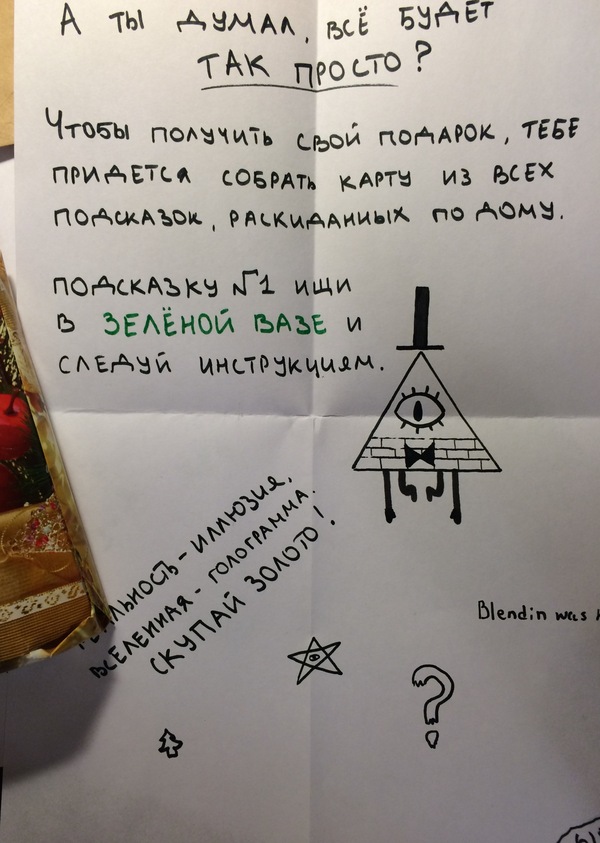 А ТЫ ДУМАЛ, ВСЁ БУДЕТ
ТАК ПРОСТО?
ЧТОБЫ ПОЛУЧИТЬ СВОЙ ПОДАРОК, ТЕБЕ
ПРИДЕТСЯ СОБРАТЬ КАРТУ ИЗ ВСЕХ
ПОДСКАЗОК, РАСКИДАННЫХ ПО ДОМУ.
ПОДСКАЗКУ №1 ИЩИ
В ЗЕЛЁНОЙ ВАЗЕ И
СЛЕДУЙ ИНСТРУКЦИЯМ.
РЕАЛЬНОСТЬ - ИЛЛЮЗИЯ,
ВСЕЛЕННАЯ - ГОЛОГРАММА.
СКУПАЙ ЗОЛОТО!
Blendin was
?